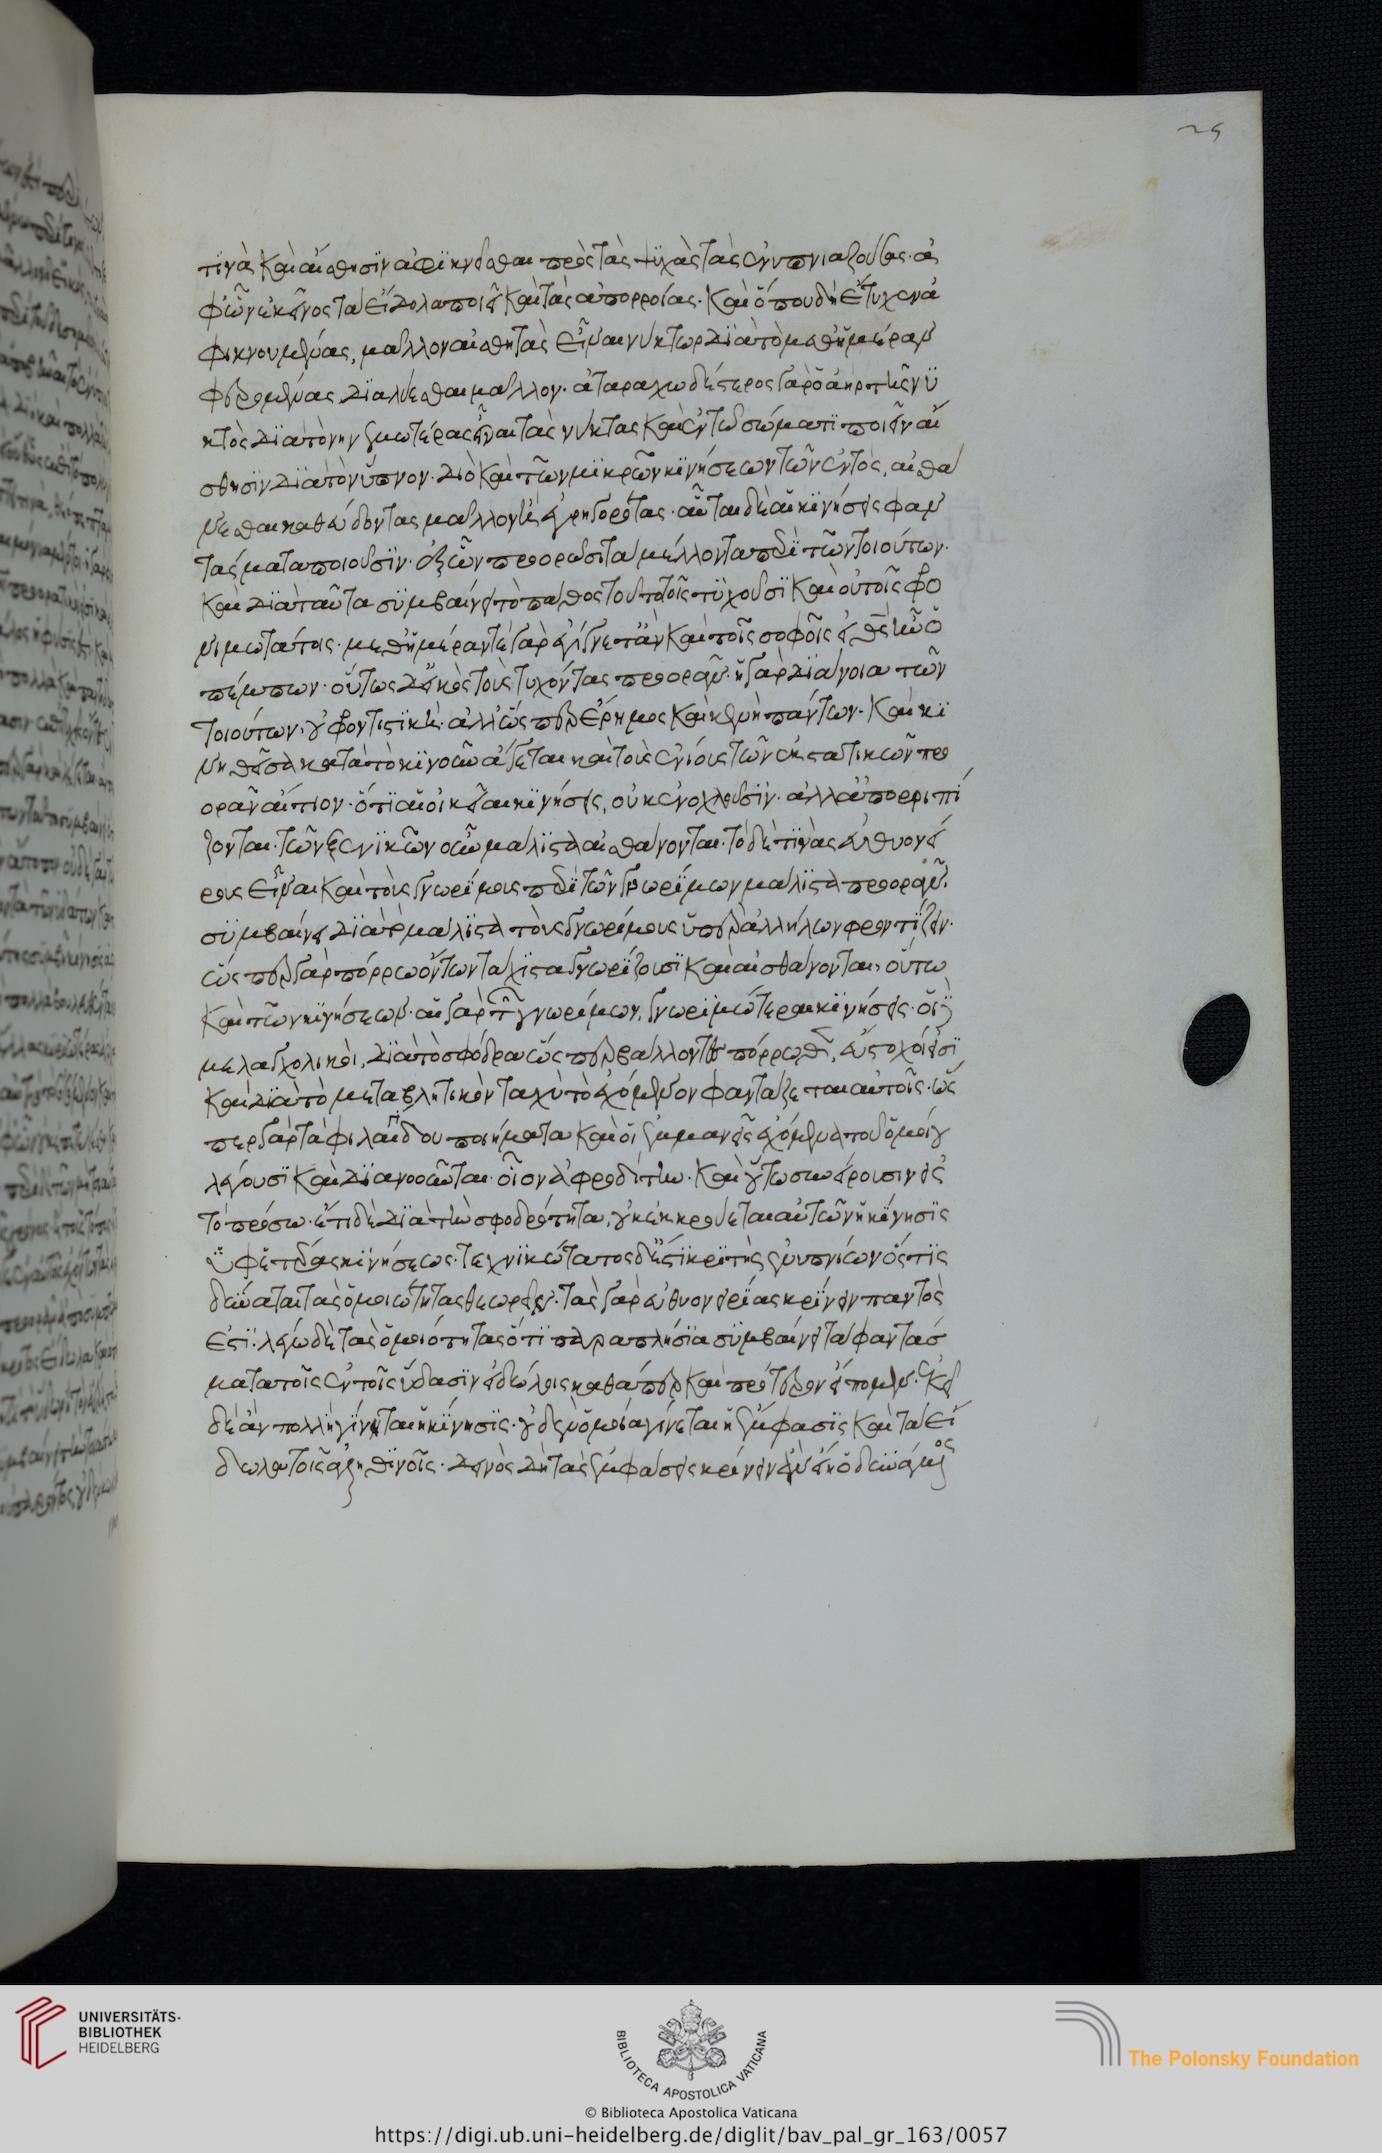 τινὰ καὶ αἴσθησιν ἀφικνεῖσθαι πρὸς τὰς ψυχὰς τὰς ἐνυπνιαζούσας· ἀ
φ' ὧν ἐκεῖνος τὰ εἴδωλα ποιεῖ καὶ τὰς ἀπορροίας· καὶ ὅπου δὴ ἔτυχεν ἀ
φικνουμένας, μᾶλλον αἰσθητὰς εἶναι νύκτωρ διὰ τὸ μεθ' ἡμέραν
φερομένας διαλύεσθαι μᾶλλον· ἀταραχωδέστερος γὰρ ὁ ἀὴρ τῆς νυ
κτὸς διὰ τὸ νηνεμωτέρας εἶναι τὰς νύκτας καὶ ἐν τῷ σώματι ποιεῖν αἴ
σθησιν διὰ τὸν ὕπνον· διὸ καὶ τῶν μικρῶν κινήσεων τῶν ἐντὸς, αἰσθά
νεσθαι καθεύδοντας μᾶλλον ἢ ἐγρηγορότας· αὗται δὲ αἱ κινήσεις φαν
τάσματα ποιοῦσιν· ἐξ ὧν προορῶσι τὰ μέλλοντα περὶ τῶν τοιούτων·
καὶ διὰ ταῦτα συμβαίνει τὸ πάθος τοῦτο τοῖς τυχοῦσι καὶ οὐ τοῖς φρο
νιμωτάτοις· μεθ' ἡμέραν τε γὰρ ἐγίγνετ' ἂν καὶ τοῖς σοφοῖς εἰ θεὸς ἦν ὁ
πέμπων· οὕτως δ' εἰκὸς τοὺς τυχόντας προορᾶν· ἡ γὰρ διάνοια τῶν
τοιούτων, οὐ φροντιστικὴ· ἀλλ' ὥσπερ ἔρημος καὶ κενὴ πάντων· καὶ κι
νηθεῖσα κατὰ τὸ κινοῦν ἄγεται καὶ τοὺς ἐνίους τῶν ἐκστατικῶν προ
ορᾶν αἴτιον· ὅτι αἱ οἰκεῖαι κινήσεις, οὐκ ἐνοχλοῦσιν· ἀλλ' ἀπορριπί
ζονται· τῶν ξενικῶν οὖν μάλιστα αἰσθάνονται· τὸ δέ τινας εὐθυονεί
ρους εἶναι καὶ τοὺς γνωρίμους περὶ τῶν γνωρίμων μάλιστα προορᾶν,
συμβαίνει διὰ τὸ μάλιστα τοὺς γνωρίμους ὑπὲρ ἀλλήλων φροντίζειν·
ὥσπερ γὰρ πόρρω ὄντων τάχιστα γνωρίζουσι καὶ αἰσθάνονται, οὕτω
καὶ τῶν κινήσεων· αἱ γὰρ τῶν γνωρίμων, γνωριμώτεραι κινήσεις· οἱ δὲ
μελαγχολικοὶ, διὰ τὸ σφόδρα ὥσπερ βάλλοντες πόρρωθεν, εὔστοχοί εἰσι
καὶ διὰ τὸ μεταβλητικὸν ταχὺ τὸ ἐχόμενον φαντάζεται αὐτοῖς· ὥσ
περ γὰρ τὰ φιλαιγίδου ποιήματα καὶ οἱ ἐμμανεῖς ἐχόμενα τοῦ ὁμοίου
λέγουσι καὶ διανοοῦνται· οἷον ἀφροδίτην· καὶ οὕτω συνείρουσιν εἰς
τὸ πρόσω· ἔτι δὲ διὰ τὴν σφοδρότητα, οὐκ ἐκκρούεται αὐτῶν ἡ κίνησις
ὑφ' ἑτέρας κινήσεως· τεχνικώτατος δ' ἐστὶ κριτὴς ἐνυπνίων ὅστις
δύναται τὰς ὁμοιότητας θεωρεῖν· τὰς γὰρ εὐθυονειρίας κρίνειν παντὸς
ἐστι· λέγω δὲ τὰς ὁμοιότητας ὅτι παραπλήσια συμβαίνει τὰ φαντάσ
ματα τοῖς ἐν τοῖς ὕδασιν εἰδώλοις καθάπερ καὶ πρότερον εἴπομεν· ἐκεῖ
δὲ ἂν πολλὴ γίνηται ἡ κίνησις· οὐδὲν ὁμοία γίνεται ἡ ἔμφασις καὶ τὰ εἴ
δωλα τοῖς ἀληθινοῖς· δεινὸς δὴ τὰς ἐμφάσεις κρίνειν εἴη ἂν ὁ δυνάμενος